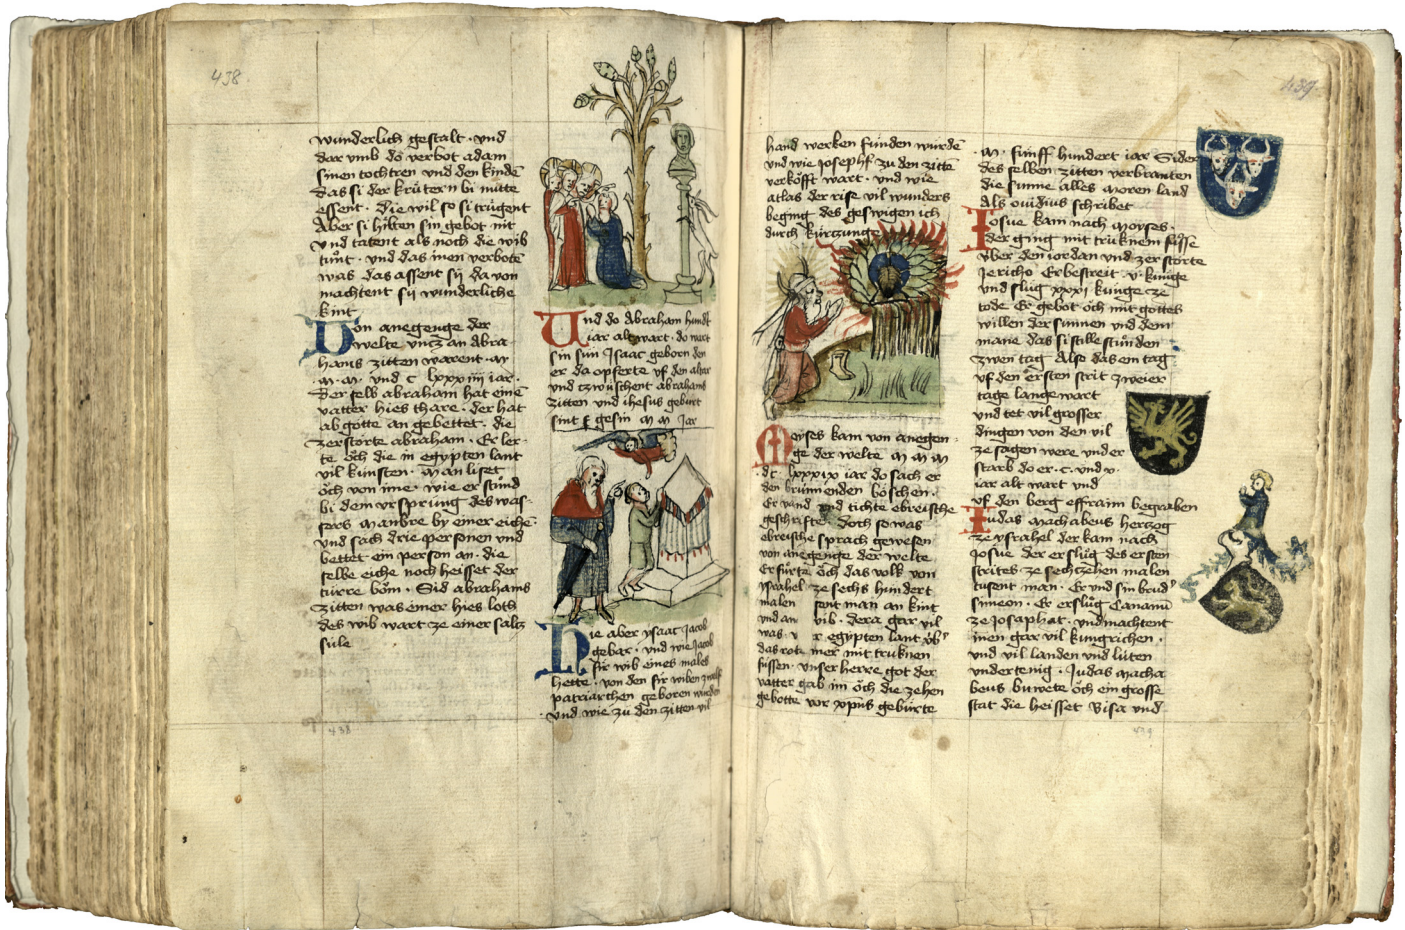 438
wunderlich gestalt · vnd
dar vmb do verbot adam
sinen tochtren vnd den kinden
das si der krütern bi nütte
essent · die wil so si trügent
Aber si hilten sin gebot nit
vnd tatent als noch die wib
tůnt · vnd das inen verbotē
was das assent sÿ da von
machtent sÿ wunderliche
kint
Von anegenge der
welte vncz an Abra-
hams zitten warent · m
· m · m · vnd c lxxxiiii iar ·
Der selb abraham hat einē
vatter hies thare · der hat
abgötte an gebettet · die
zerstorte abraham · Er ler-
te öch die in egypten lant
vil kunsten · Man liset
öch von ime · wie er stůnd
bi dem vrsprung des was-
sers Manbre by einer eiche
vnd sach drie personen vnd
bettet ein person an · die
selbe eiche noch heisset der
türre bŏm · Sid abrahams
zitten was einer hies loth
des wib wart ze einer saltz
süle
Vnd do Abraham hundt
iar alt wart · do wart
sin sun Isaac geborn den
er da opferte vf den altar
vnd tzwüschent abrahams
zitten vnd ihesus geburt
sint gesin m m jar
Die aber ysaac Jacob
gebar · vnd wie Jacob
fir wib eines males
hette · von den fir wiben zwelf
patriarchen geboren wurden
vnd wie zu den zitten vil
438
439
hand werken funden wurdē
vnd wie Joseph zu den zittē
verköfft wart · vnd wie
atlas der rise vil wunders
beging des geswigen ich
durch kürczunge
Moyses kam von anegen-
ge der welte m m m
· dc · lxxxix iar do sach er
den brünnenden böschen ·
Er vand vnd tichte ebreische
geschrifte · doch so was
ebreische sprach gewesen
von anegenge der welte
Er fürte öch das volk von
ysrahel ze sechs hundert
malen sent man an kint
vnd an wib · dera gar vil
was · v r egypten lant
das rote mer mit truknen
füssen · vnser herre got der
vatter gab im öch die zehen
gebotte vor xpūs gebürte
· m · fünff hundert iar Sider
des selben zitten verbranten
die sunne alles moren land
Als ouidius schribet
Iosue kam nach moyses ·
der ging mit truknem füsse
vber den iordan vnd zerstörte
Jericho Er bestreit · v · künige
vnd slůg xxxi künge ze
tode Er gebot öch mit gottes
willen der sunnen vnd dem
mane das si stille stůnden
zwen tag Also das ein tag
vf den ersten strit zweier
tage lange wart
vnd tet vil grosser
dingen von den vil
ze sagen were vnder
starb do er · c · vnd x ·
iar alt wart vnd
vf den berg effraim begraben
Iudas machabeus herczog
ze ysrahel der kam nach
Josue der er slůg des ersten
strites ze sechczehen malen
tusent man · Er vnd sin brud
simeon · Er erslůg Cananū
ze Josaphat · vnd machtent
inen gar vil kungrichen ·
vnd vil landen vnd lüten
vndertenig · Judas Macha
beus buwete öch ein grosse
stat die heisset Bisa vnd
439